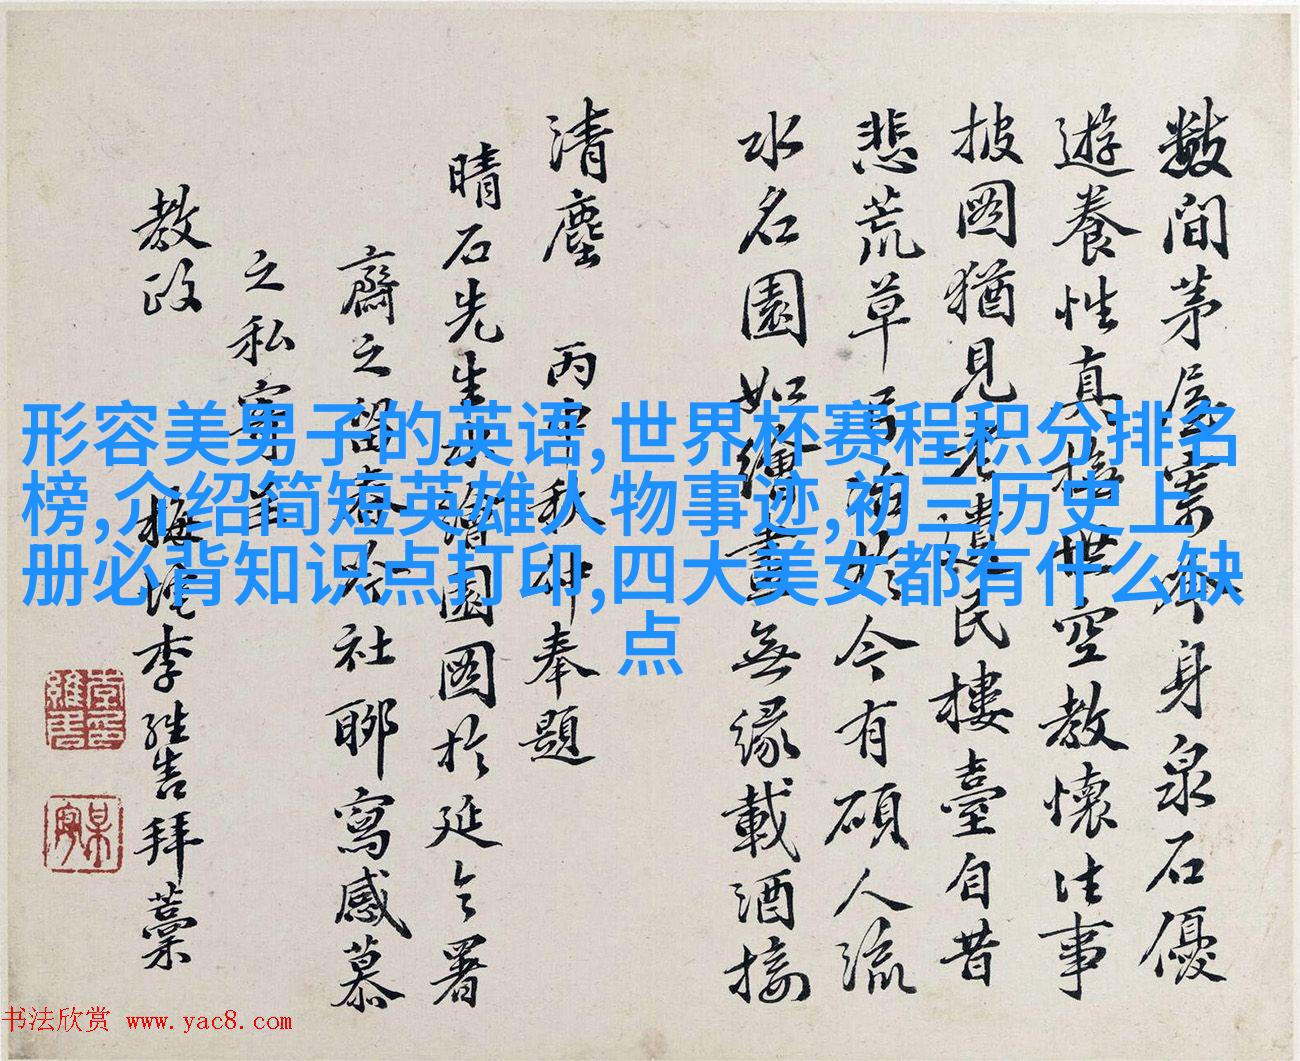 數間茅屋寄身泉石優
遊養性真撫世空教懷往事
披圖猶見老遺民樓臺自昔
悲荒草今有碩人流
水名園如繪畫無緣載酒接
清塵 丙申秋仲奉題
晴石先生繪園圖於延令署
齋之留春社聊寫感慕
之私
教政 梅李拜藁
形容美男子的英语,世界杯赛程积分排名
榜,介绍简短英雄人物事迹,初三历史上
册必背知识点打印,四大美女都有什么缺
点
书法欣赏 www.yac8.com